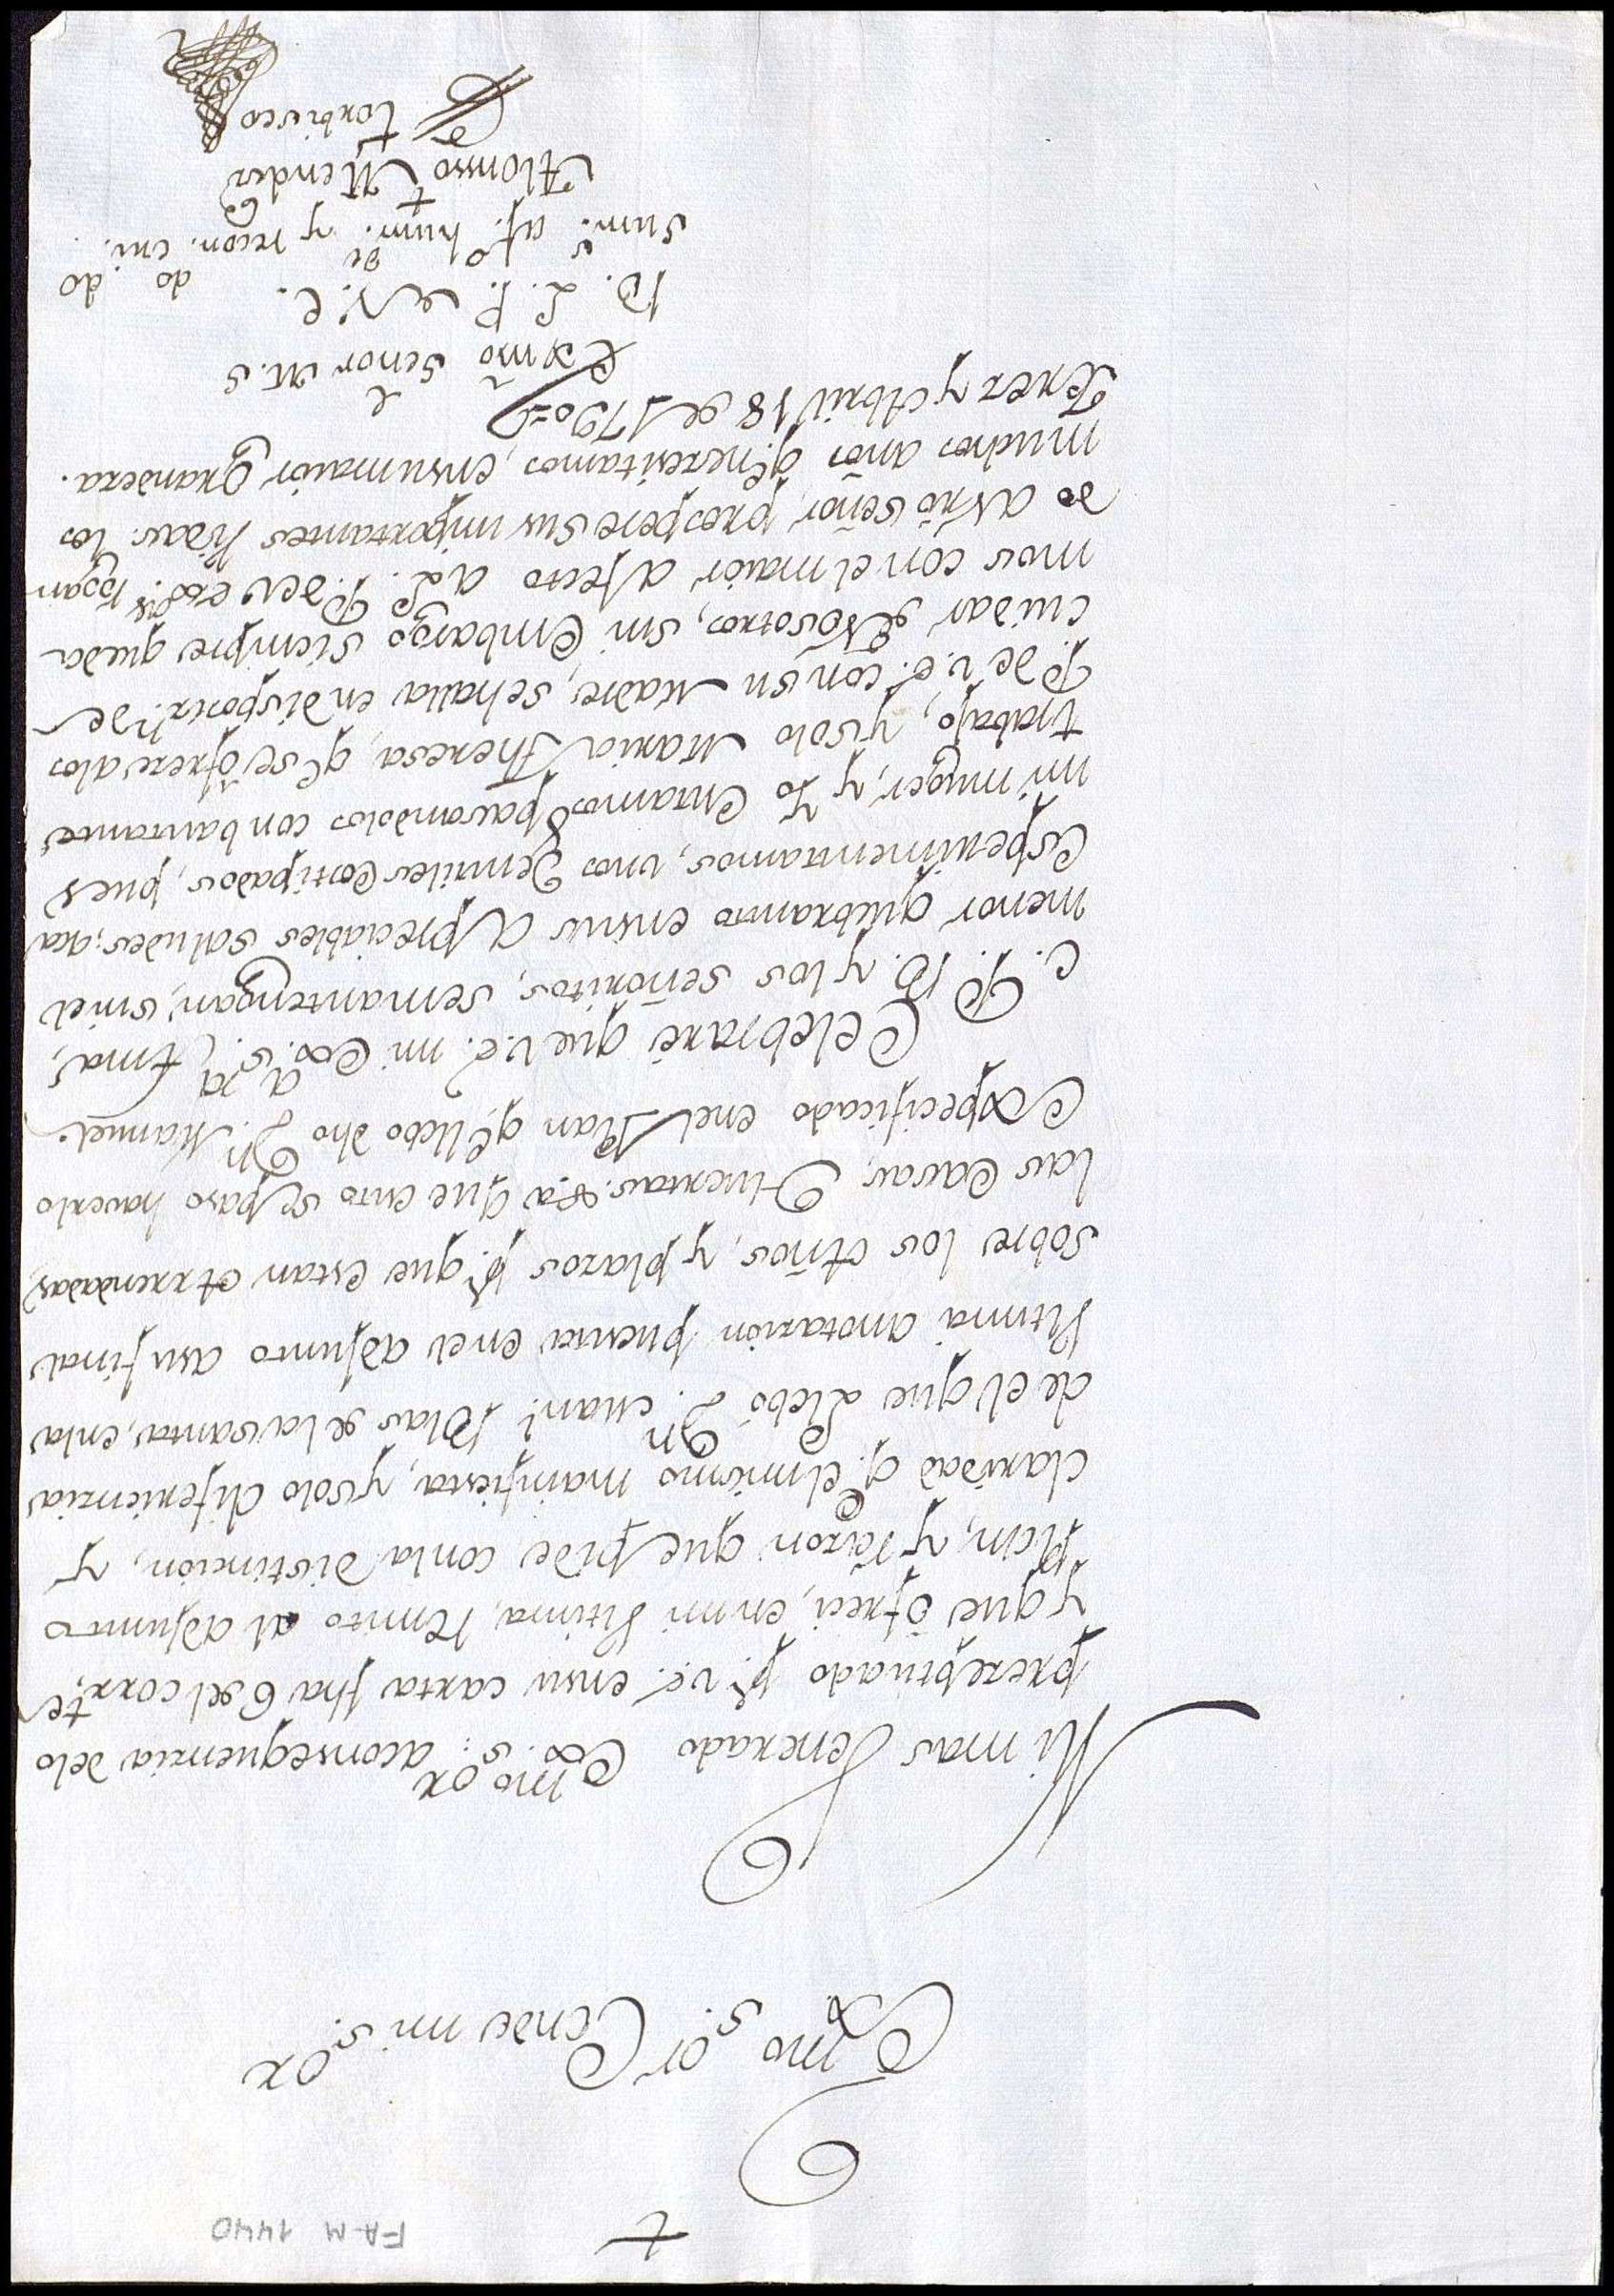 FAM 1440
t
Exmo. Sor. Conde mi Sor.
Mi mas Venerado Exmo. Sor.: a consequenzia delo
prezeptuado pr. V.E. en su carta fha 6 del corrte.,
y que ofreci, en mi Vltima, remito al adjunto
Plan, y razon que pide con la distincion, y
claridad qe. el mismo manifiesta, y solo diferienzia
de el que Llebó Dn. Manl. Blas de la santa, en la
Vltima anotazion puesta en el adjunto a su final
sobre los Años, y plazos pr. que estan Arrendadas,
las Casas, Huertas &a. que en eso de paso haverlo
Expecificado en el Plan qe. llebo dho Dn. Manuel.
Celebraré que V.E. mi Exa. Sa. (Ama,
C. P. B. y los señoritos, se mantengan, sin el
menor quebranto en sus Apreciables saludes; aca
Esperimentamos, unos Jentiles Costipados, pues
mi muger, y Yo Estamos pasandolos con bastante
trabajo, y solo Maria Theresa, qe. se ofreze a los
P. de V.E. con su Madre, se halla en disposizn. de
cuidar de Nosotros, sin Embargo siempre queda
mos con el maior afecto a L. P. de V. Exs. rogan
do a Ntrô señor, prospere sus importantes Vidas los
muchos años qe. nezesitamos, en su maior grandeza.
Xerez y Abril 18 de 1790=
Exmô Señor
B. L. P. de V. E.
su mas afto. humde. y recondo. cdo.
Alonso Mendez
torbisco